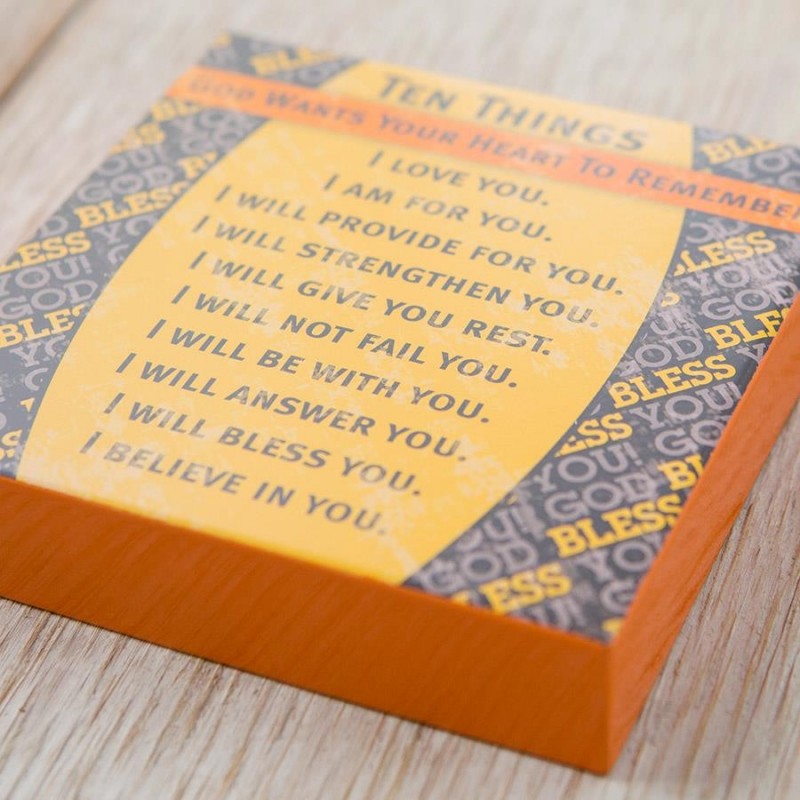 TEN THINGS
GOD WANTS YOUR HEART TO REMEMBER
I LOVE YOU.
I AM FOR YOU.
I WILL PROVIDE FOR YOU.
I WILL STRENGTHEN YOU.
I WILL GIVE YOU REST.
I WILL NOT FAIL YOU.
I WILL BE WITH YOU.
I WILL ANSWER YOU.
I WILL BLESS YOU.
I BELIEVE IN YOU.
GOD BLESS YOU!
GOD BLESS YOU!
GOD BLESS YOU!
GOD BLESS YOU!